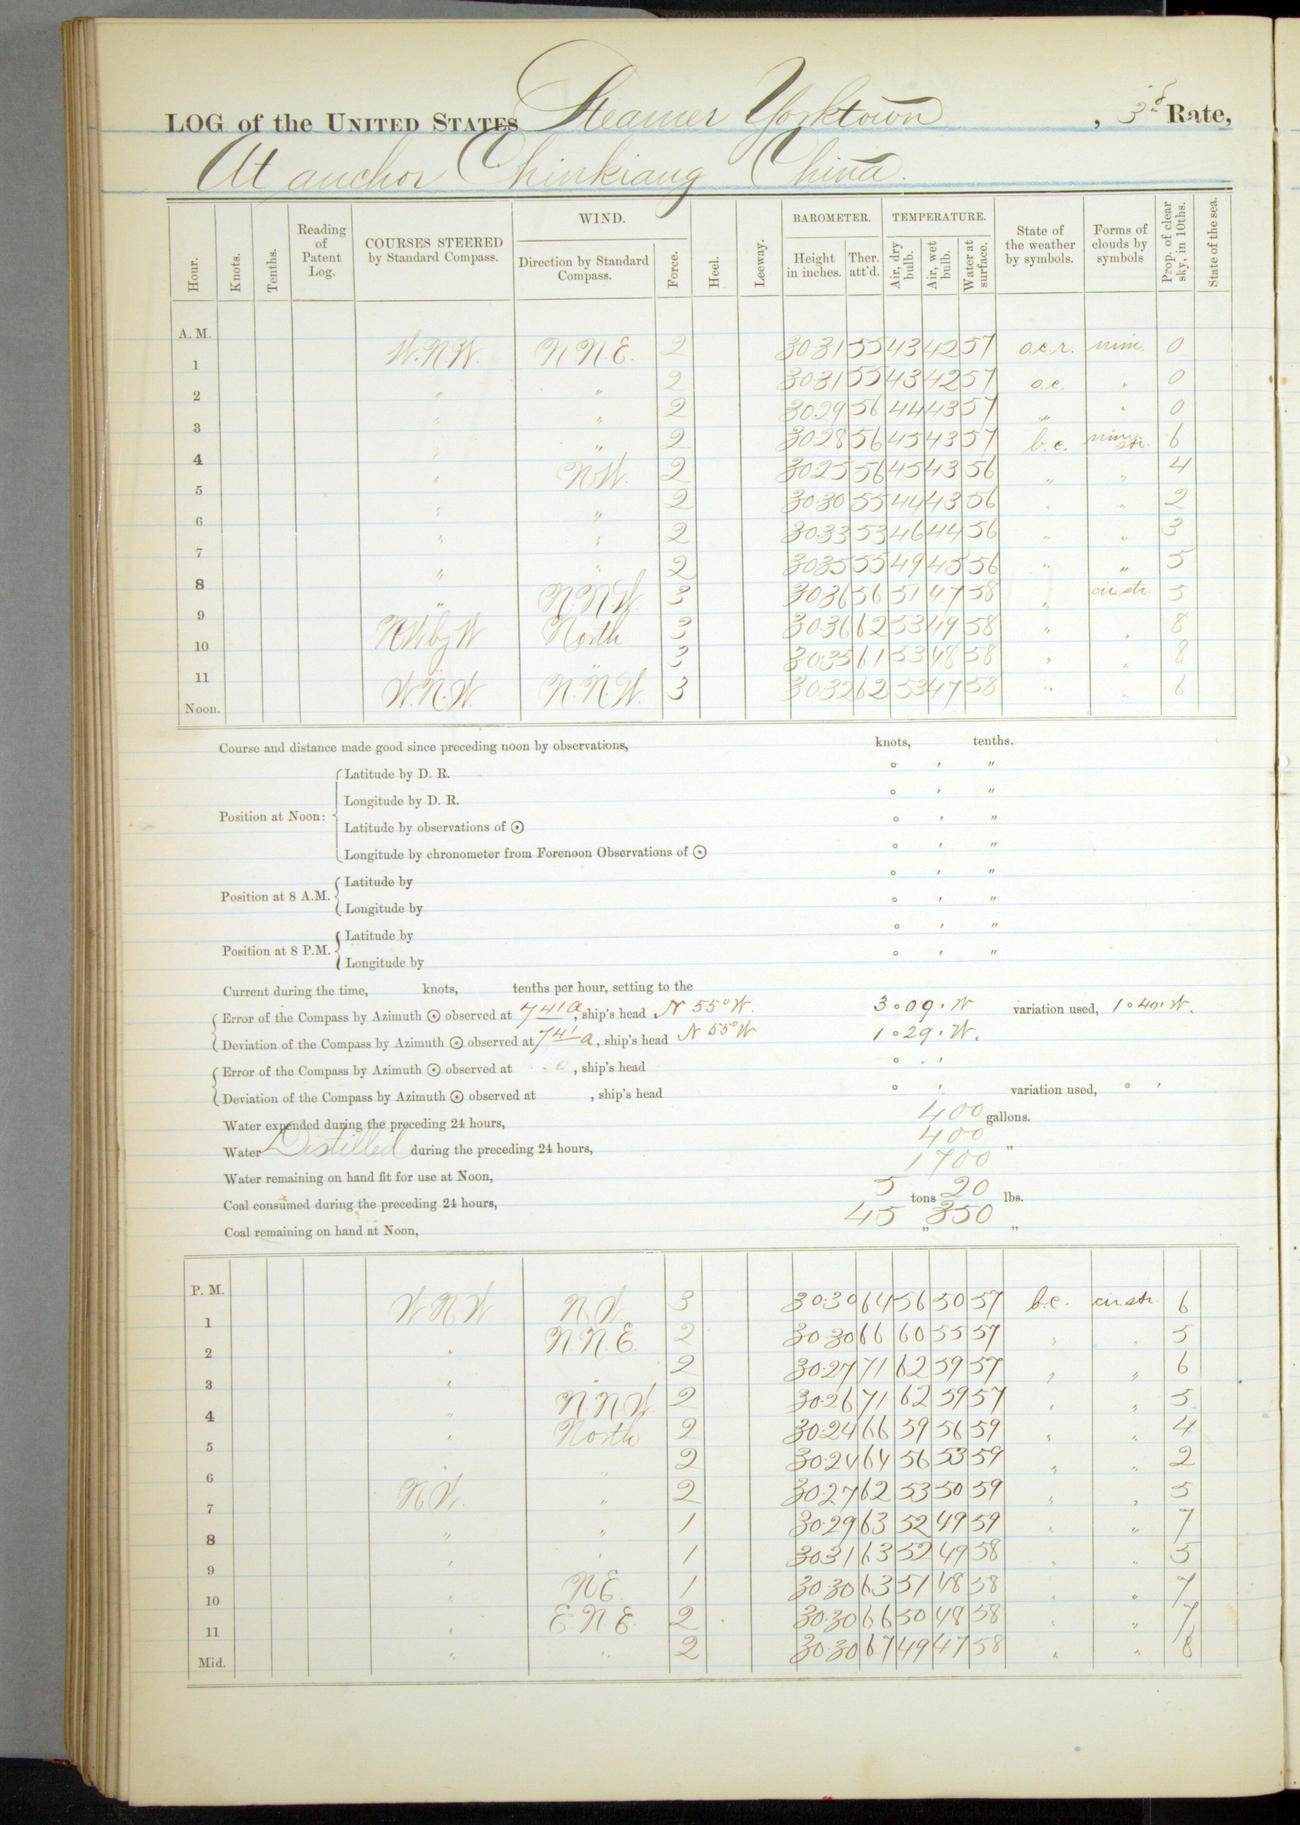 LOG of the UNITED STATES Steamer Yorktown, 3d Rate,
At anchor Chinkiang China.
Hour. Knots. Tenths. Reading of Patent Log. COURSES STEERED by Standard Compass. WIND. Direction by Standard Compass. Force. Heel. Leeway. BAROMETER. Height in inches. Ther. att'd. TEMPERATURE. Air, dry bulb. Air, wet bulb. Water at surface. State of the weather by symbols. Forms of clouds by symbols Prop. of clear sky, in 10ths. State of the sea.
A. M.
1 W.N.W. N N.E. 2 30.31 55 43 42 57 o.c.r. nim. 0
2 " " 2 30.31 55 43 42 57 o.c. " 0
3 " " 2 30.29 56 44 43 57 " " 0
4 " " 2 30.28 56 45 43 57 b.c. nim str. 6
5 " NW. 2 30.25 56 45 43 56 " " 4
6 " " 2 30.30 55 44 43 56 " " 2
7 " " 2 30.33 53 46 44 56 " " 3
8 " " 2 30.35 55 49 45 56 " " 5
9 " N.N.W 3 30.36 56 51 47 58 " cir.str. 5
10 NW by W North 3 30.36 62 53 49 58 " " 8
11 " 3 30.35 61 53 48 58 " " 8
Noon. W.N.W. N.N.W. 3 30.32 62 53 47 58 " " 6
Course and distance made good since preceding noon by observations, knots, tenths.
Position at Noon: Latitude by D. R. ° ′ ″
Longitude by D. R. ° ′ ″
Latitude by observations of ☉ ° ′ ″
Longitude by chronometer from Forenoon Observations of ☉ ° ′ ″
Position at 8 A.M. Latitude by ° ′ ″
Longitude by ° ′ ″
Position at 8 P.M. Latitude by ° ′ ″
Longitude by ° ′ ″
Current during the time, knots, tenths per hour, setting to the
Error of the Compass by Azimuth ☉ observed at 7 41 a, ship's head N 55° W. 3 ° 09 ′ W variation used, 1 ° 40 ′ W.
Deviation of the Compass by Azimuth ☉ observed at 7 41 a, ship's head N 55° W 1 ° 29 ′ W.
Error of the Compass by Azimuth ☉ observed at , ship's head ° ′
Deviation of the Compass by Azimuth ☉ observed at , ship's head ° ′ variation used, ° ′
Water expended during the preceding 24 hours, 400 gallons.
Water Distilled during the preceding 24 hours, 400 "
Water remaining on hand fit for use at Noon, 1700
Coal consumed during the preceding 24 hours, 5 tons 20 lbs.
Coal remaining on hand at Noon, 45 " 350 "
P. M.
1 W N W N.W. 3 30.30 64 56 50 57 b.c. cir str. 6
2 " N N.E. 2 30.30 66 60 55 57 " " 5
3 " " 2 30.27 71 62 59 57 " " 6
4 " N N W 2 30.26 71 62 59 57 " " 5
5 " North 2 30.24 66 59 56 59 " " 4
6 " " 2 30.24 64 56 53 59 " " 2
7 N W. " 2 30.27 62 53 50 59 " " 5
8 " " 1 30.29 63 52 49 59 " " 7
9 " " 1 30.31 63 52 49 58 " " 5
10 " N E. 1 30.30 63 51 48 58 " " 7
11 " E N E. 2 30.30 66 50 48 58 " " 7
Mid. " " 2 30.30 67 49 47 58 " " 8